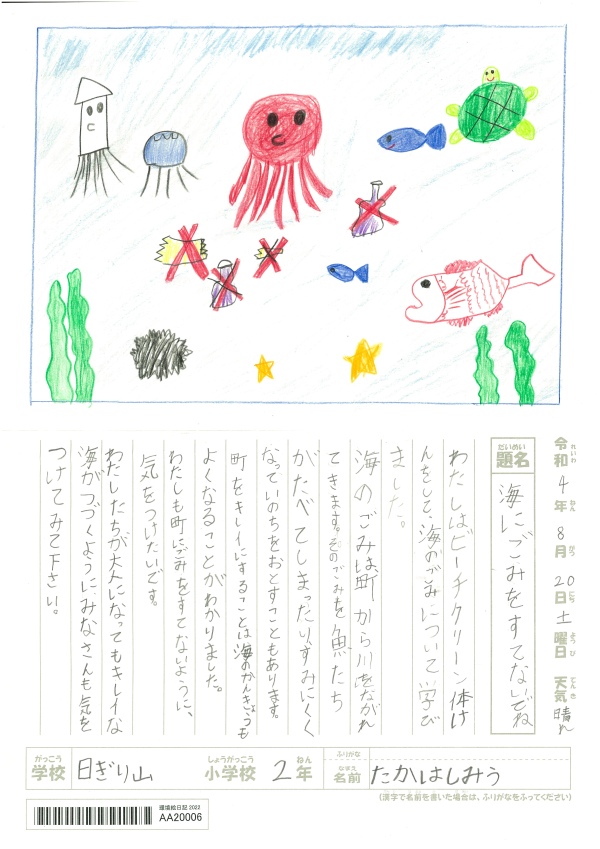 令和4年8月20日土曜日 天気晴れ
れいわ ねん がつ にち ようび てんき
だいめい
題名 海にごみをすてないでね
わたしはビーチクリーン体け
んをして、海のごみについて学び
ました。
海のごみは、町から川をながれ
てきます。そのごみを魚たち
がたべてしまったり、すみにくく
なっていのちをおとすこともあります。
町をキレイにすることは海のかんきょうも
よくなることがわかりました。
わたしも町にごみをすてないように、
気をつけたいです。
わたしたちが大人になってもキレイな
海がつづくようにみなさんも気を
つけてみて下さい。
がっこう しょうがっこう ねん
学校 日ぎり山 小学校 2年
ふりがな
なまえ
名前 たかはしみう
(漢字で名前を書いた場合は、ふりがなをふってください)
環境絵日記 2022
AA20006